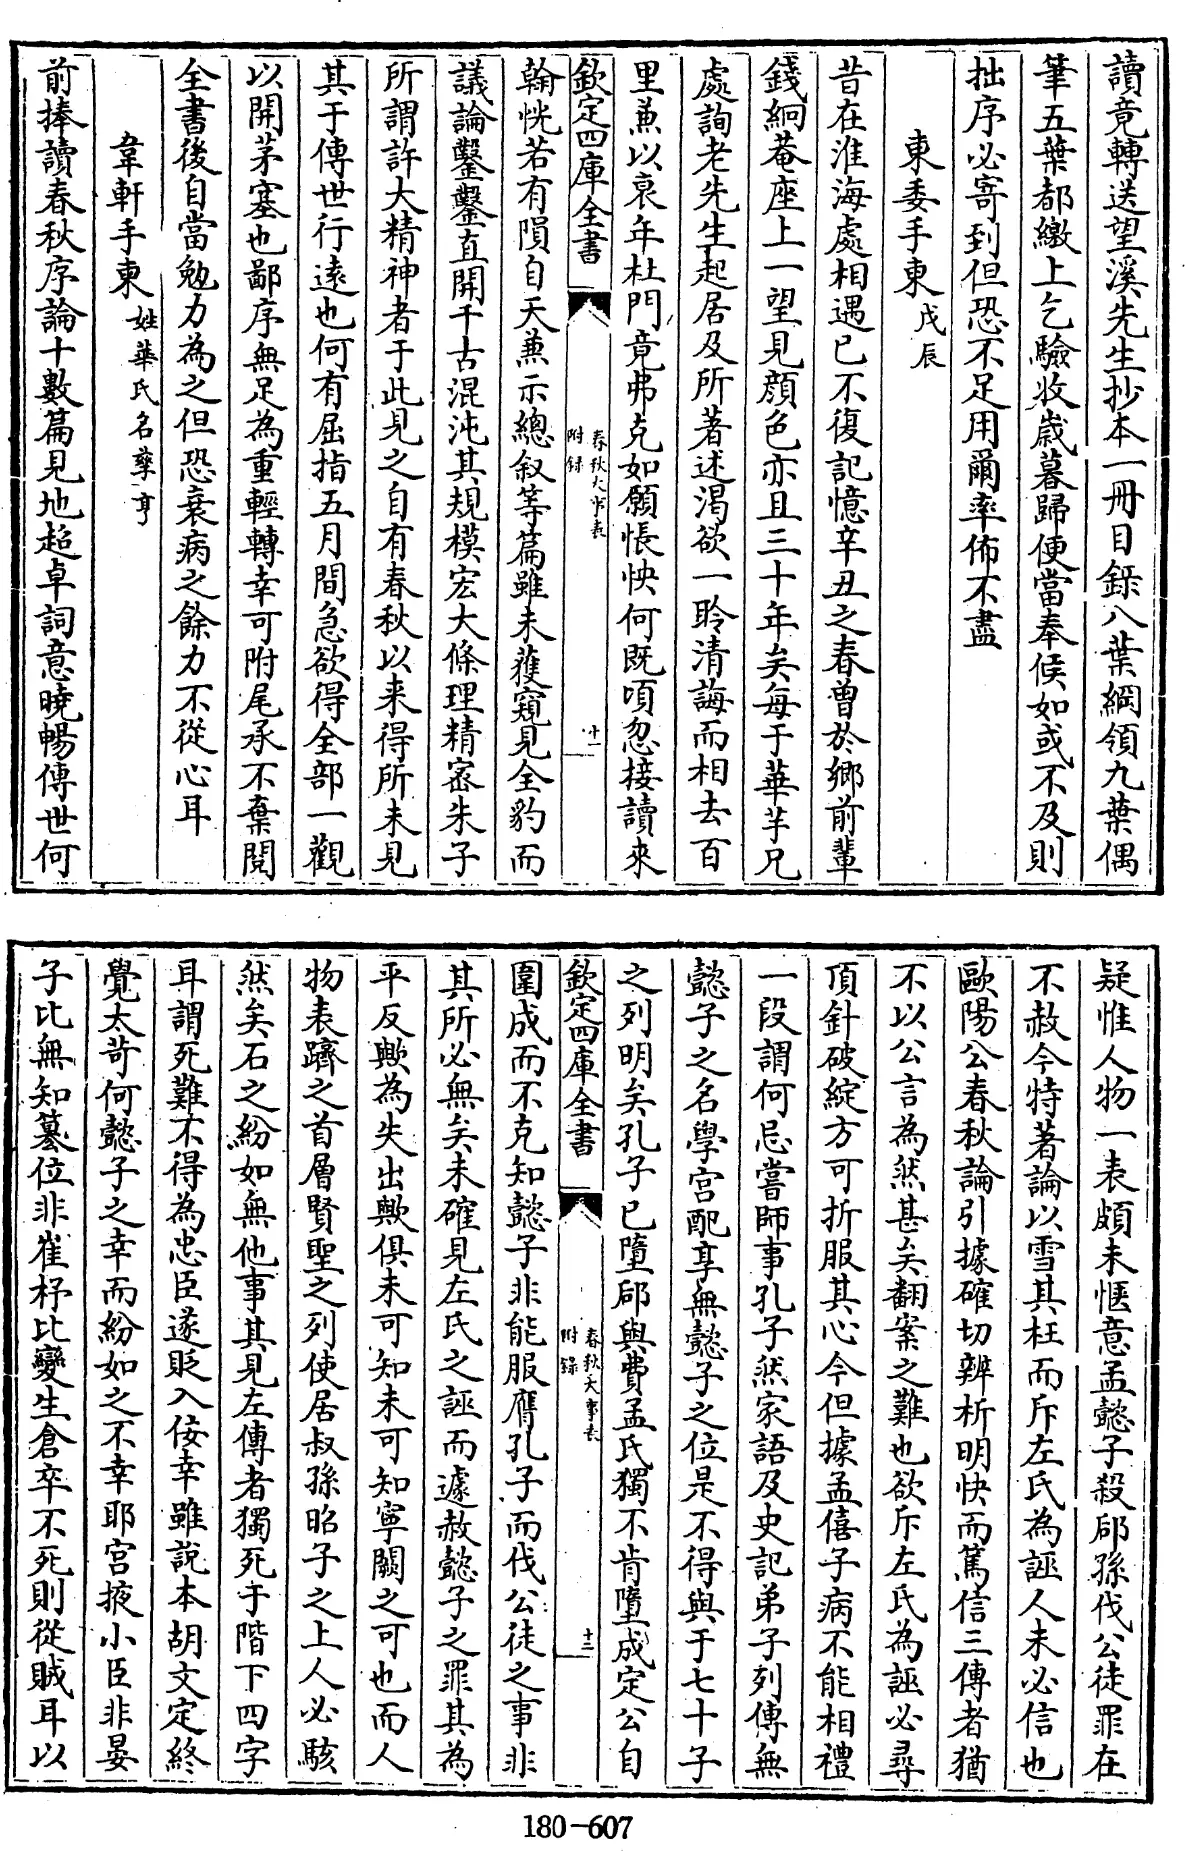 讀竟轉送望溪先生抄本一冊目錄八葉綱領九葉偶
筆五葉都繳上乞驗收歳暮歸便當奉候如或不及則
拙序必寄到但恐不足用爾率佈不盡
東委手柬戊辰
昔在淮海處相遇已不復記憶辛丑之春曾於鄉前輩
錢絅菴座上一望見顔色亦且三十年矣每于華芋兄
處詢老先生起居及所著述渴欲一聆清誨而相去百
里兼以衰年杜門竟弗克如願悵怏何既頃忽接讀來
欽定四庫全書
春秋大事表
附録
十一
翰恍若有隕自天兼示總叙等篇雖未獲窺見全豹而
議論鑿鑿直開千古混沌其規模宏大條理精宻朱子
所謂許大精神者于此見之自有春秋以来得所未見
其于傳世行遠也何有屈指五月間急欲得全部一觀
以開茅塞也鄙序無足為重輕轉幸可附尾承不棄閱
全書後自當勉力為之但恐衰病之餘力不從心耳
韋軒手柬姓華氏名孳亨
前捧讀春秋序論十數篇見地超卓詞意曉暢傳世何
疑惟人物一表頗未愜意孟懿子殺郈孫伐公徒罪在
不赦今特著論以雪其枉而斥左氏為誣人未必信也
歐陽公春秋論引據確切辨析明快而篤信三傳者猶
不以公言為然甚矣翻案之難也欲斥左氏為誣必尋
頂針破綻方可折服其心今但據孟僖子病不能相禮
一段謂何忌嘗師事孔子然家語及史記弟子列傳無
懿子之名學宮配享無懿子之位是不得與于七十子
之列明矣孔子已墮郈與費孟氏獨不肯墮成定公自
欽定四庫全書
春秋大事表
附録
十二
圍成而不克知懿子非能服膺孔子而伐公徒之事非
其所必無矣未確見左氏之誣而遽赦懿子之罪其為
平反歟為失出歟俱未可知未可知寧闕之可也而人
物表躋之首層賢聖之列使居叔孫昭子之上人必駭
然矣石之紛如無他事其見左傳者獨死于階下四字
耳謂死難不得為忠臣遂貶入佞幸雖說本胡文定終
覺太苛何懿子之幸而紛如之不幸耶宫掖小臣非晏
子比無知簒位非崔杼比變生倉卒不死則從賊耳以
180-607